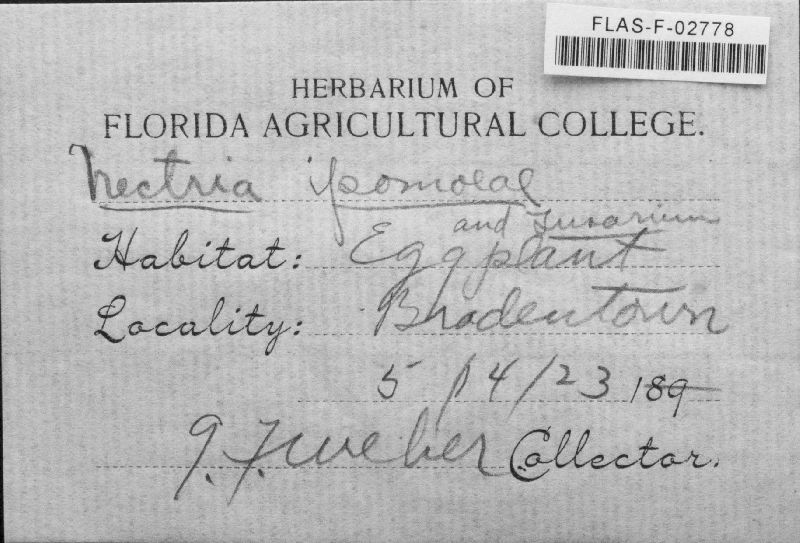 FLAS-F-02778
HERBARIUM OF
FLORIDA AGRICULTURAL COLLEGE.
Nectria ipomoeae
and Fusarium
Habitat: Eggplant
Locality: Bradentown
5/14/23 189
G.F. Weber Collector.